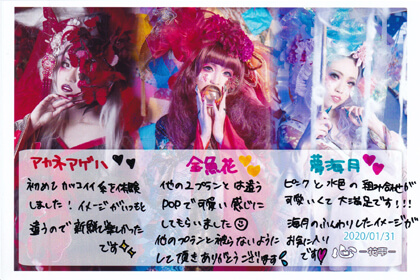 アカネアゲハ
初めてカッコイイ系で体験
しました！イメージがいつもと
違うので新鮮で楽しかった
です
金魚花
他の2プランとは違う
POPで可愛い感じに
してもらいました
他のプランと被らないように
して頂きありがとうございます
夢海月
ピンクと水色の組み合せが
可愛いくて大満足です!!!
海月のふんわりしたイメージが
お気に入り
です
2020/01/31
心-花雫-